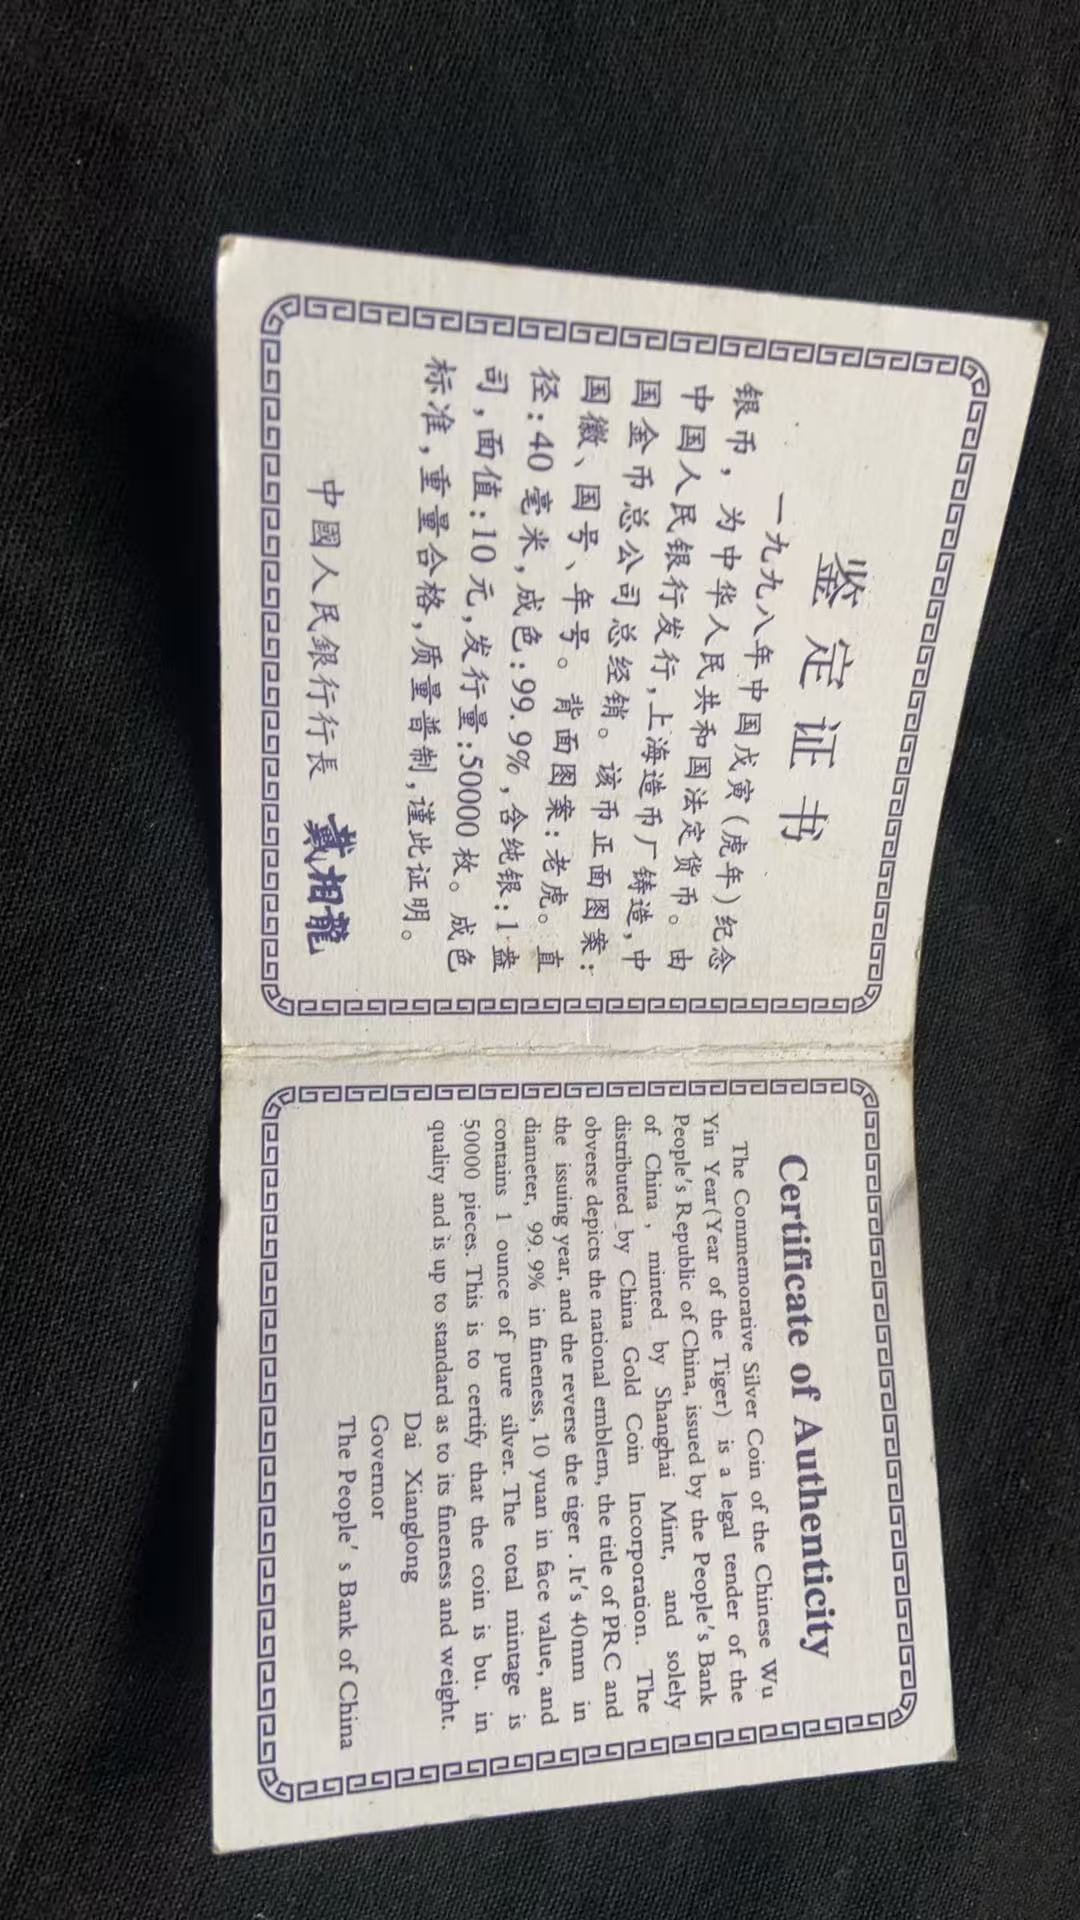 鉴定证书
一九九八年中国戊寅(虎年)纪念
银币，为中华人民共和国法定货币。由
中国人民银行发行，上海造币厂铸造，中
国金币总公司总经销。该币正面图案：
国徽、国号、年号。背面图案：老虎。直
径：40毫米，成色：99.9%，含纯银：1盎
司，面值：10元，发行量：50000枚。成色
标准，重量合格，质量普制，谨此证明。
中國人民銀行行長 戴相龍
Certificate of Authenticity
The Commemorative Silver Coin of the Chinese Wu
Yin Year(Year of the Tiger) is a legal tender of the
People's Republic of China, issued by the People's Bank
of China , minted by Shanghai Mint, and solely
distributed by China Gold Coin Incorporation. The
obverse depicts the national emblem, the title of PRC and
the issuing year, and the reverse the tiger . It's 40mm in
diameter, 99. 9% in fineness, 10 yuan in face value, and
contains 1 ounce of pure silver. The total mintage is
50000 pieces. This is to certify that the coin is bu. in
quality and is up to standard as to its fineness and weight.
Dai Xianglong
Governor
The People' s Bank of China